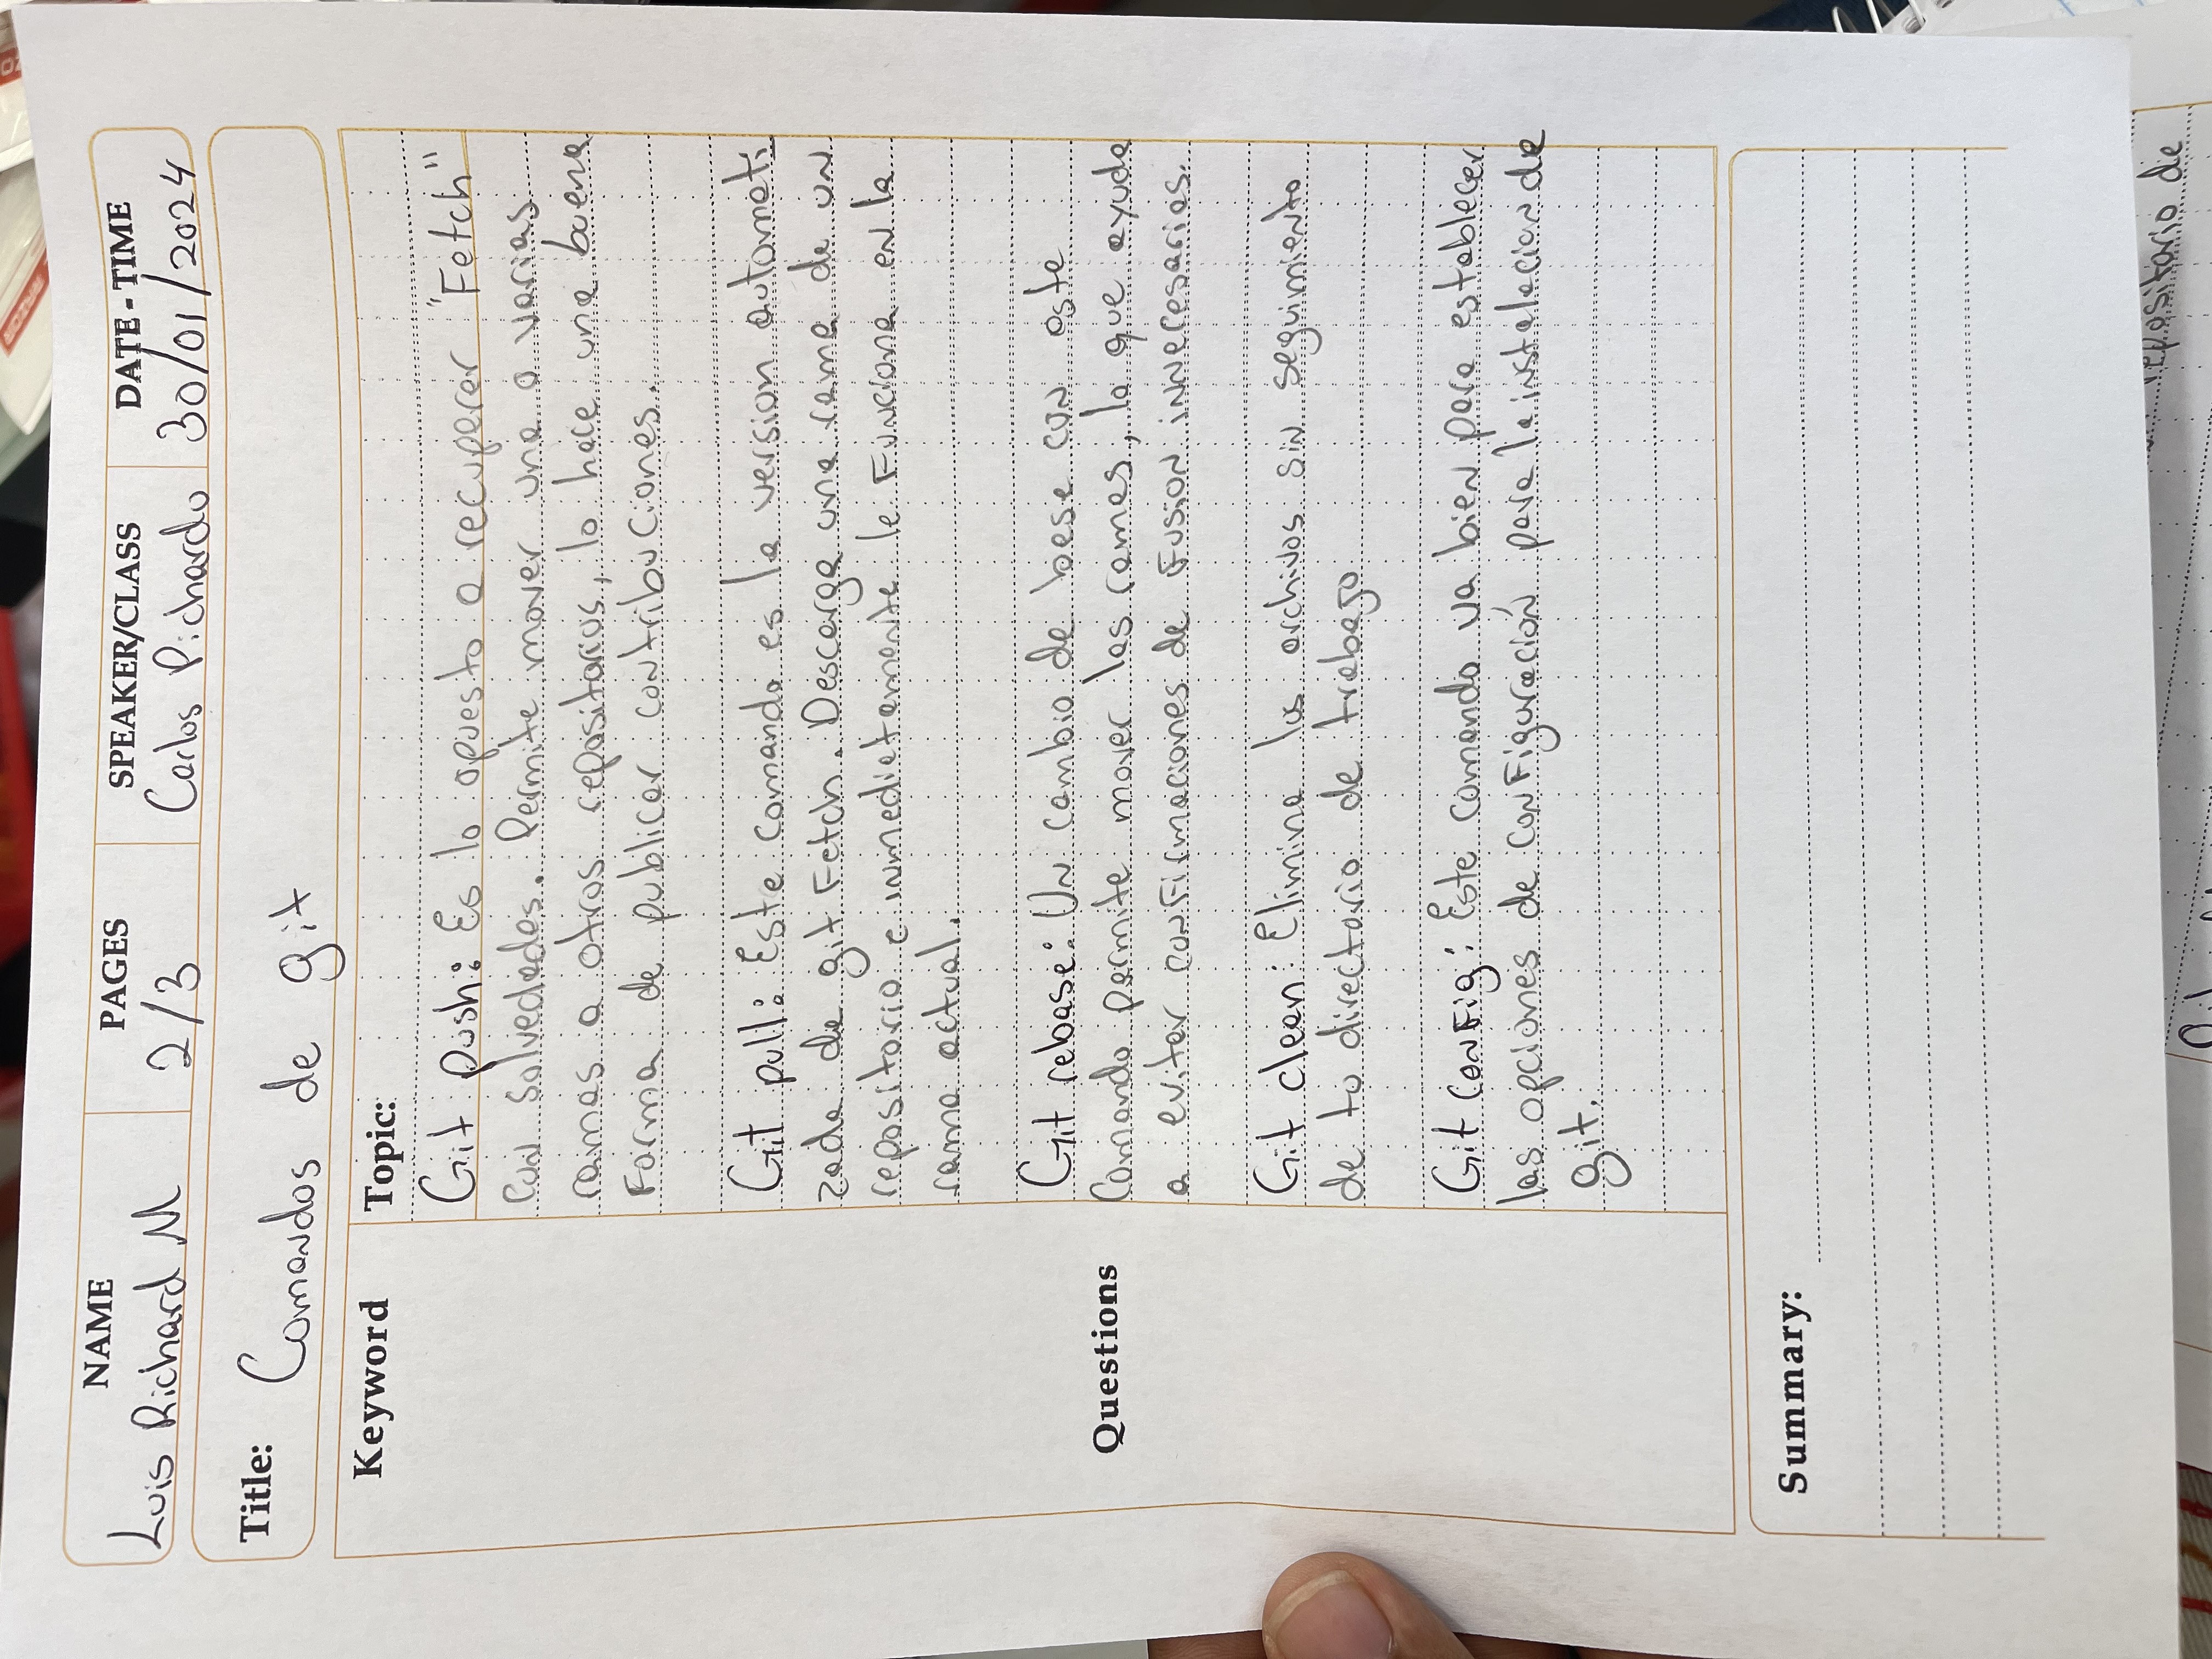 NAME
Luis Richard M
PAGES
2/3
SPEAKER/CLASS
Carlos Pichardo
DATE - TIME
30/01/2024
Title: Comandos de git
Keyword
Topic:
Git push: Es lo opuesto a recuperar "Fetch"
con salvedades. Permite mover una o varias
ramas a otros repositorios, lo hace una buena
Forma de publicar contribuciones.
Git pull: Este comando es la version automati
zada de git Fetch. Descarga una rama de un
repositorio e inmediatamente la Funciona en la
rama actual.
Git rebase: Un cambio de base con este
Comando permite mover las ramas, lo que ayuda
a evitar conFirmaciones de Fusion innecesarias.
Questions
Git clean: Elimina los archivos sin seguimiento
de tu directorio de trabajo
Git conFig: Este comando va bien para establecer
las opciones de conFiguración para la instalacion de
git.
Summary:
repositorio de